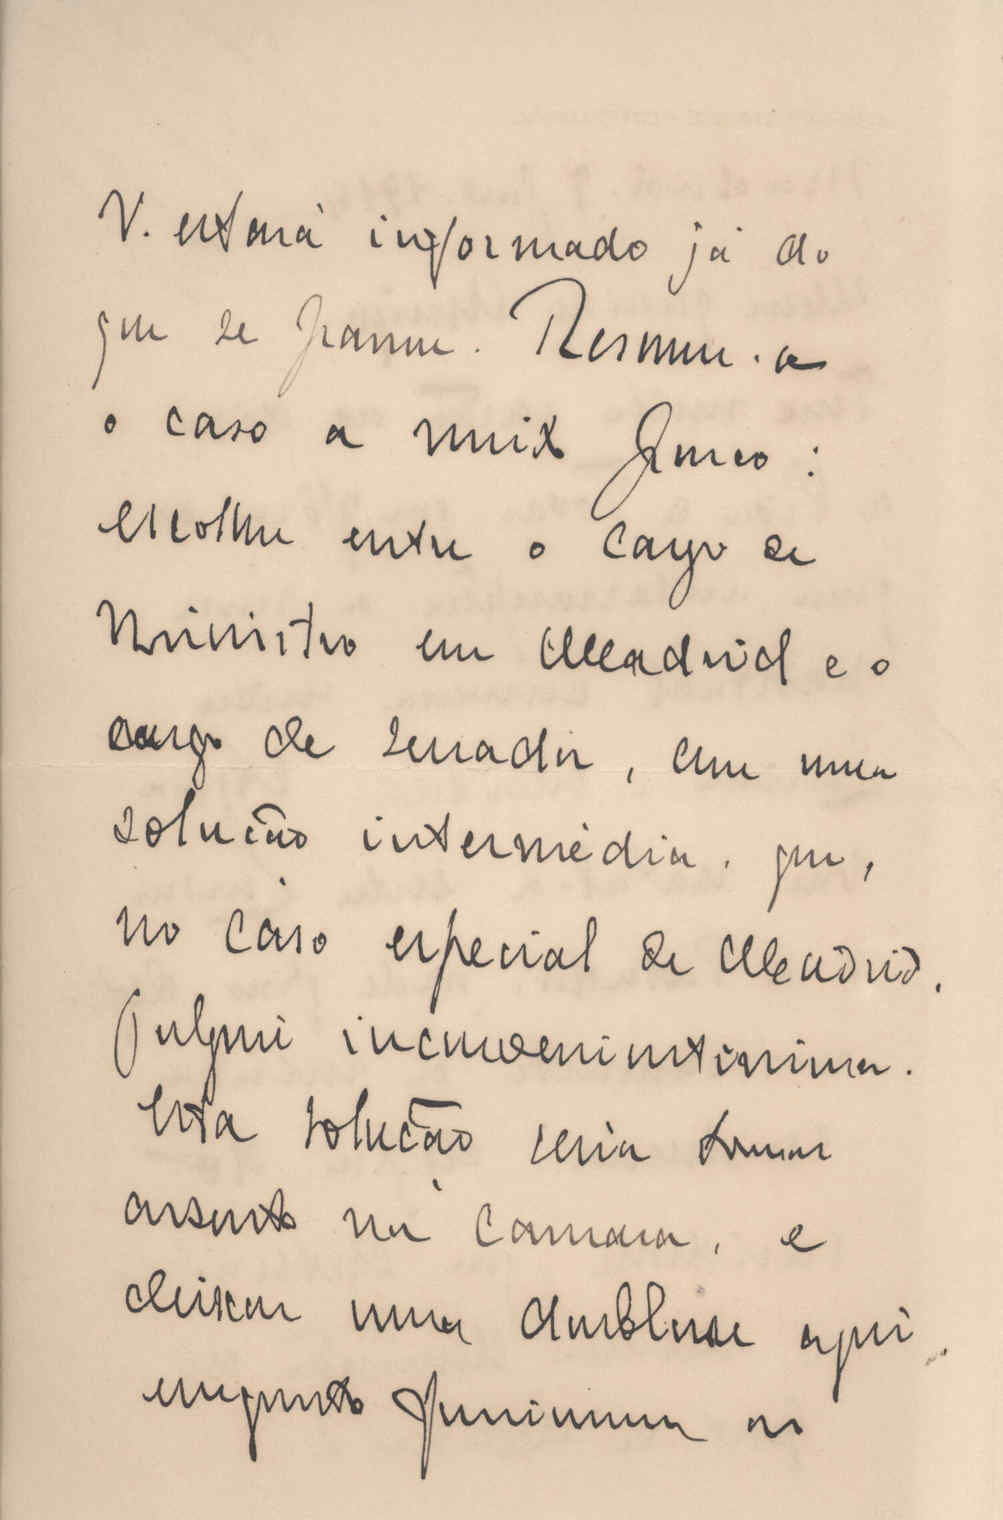 V. estará informado já do
que se passou. Resume-se
o caso a muito pouco:
escolher entre o cargo de
Ministro em Madrid e o
cargo de senador, com uma
solução intermédia, que,
no caso especial de Madrid,
julguei inconvenientissima.
Esta solução seria tomar
assento na Camara, e
deixar uma doublure aqui,
enquanto funcionam as